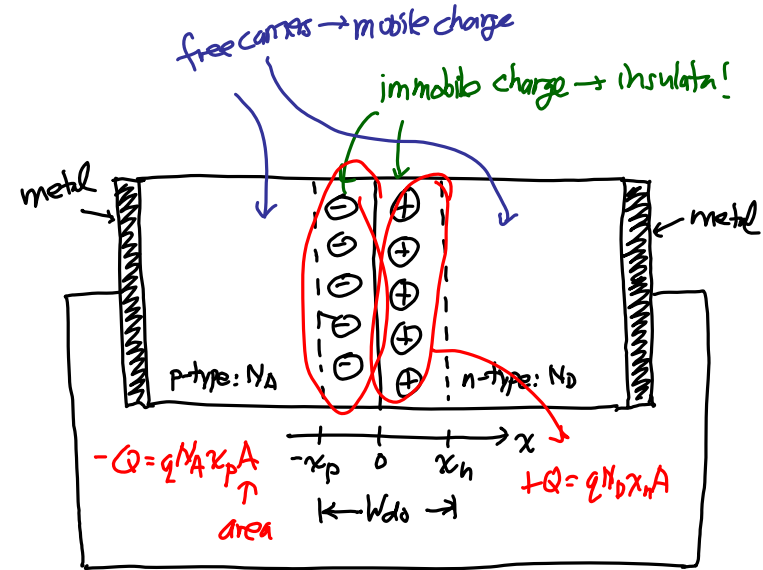 free carriers → mobile charge
immobile charge → insulator!
metal
metal
⊖ ⊕
⊖ ⊕
⊖ ⊕
⊖ ⊕
⊖ ⊕
p-type: N_A
n-type: N_D
-x_p 0 x_n x
-Q = qN_A x_p A
area
+Q = qN_D x_n A
W_do